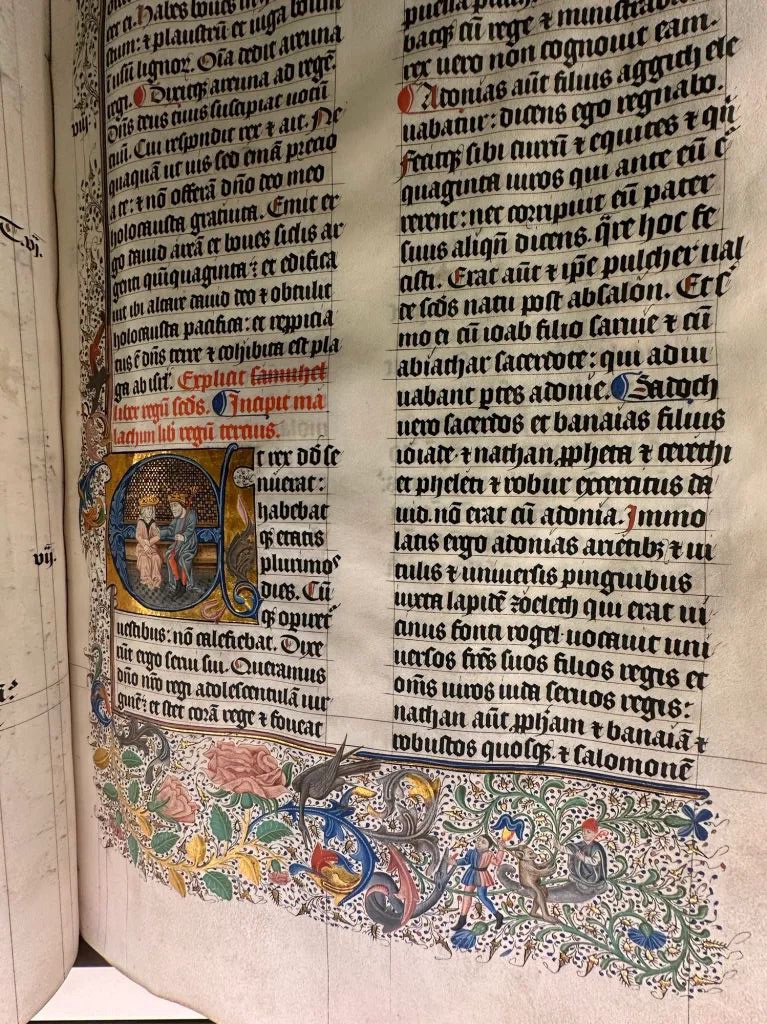 er ei. Habes boues in
trum: ⁊ plaustrū et iuga boum
ī usū lignoꝝ. Oīa dedit areuna
regi. Dixitqꝫ areuna ad regē.
Dn̄s deus tuus suscipiat uotū
tuū. Cui respondit rex ⁊ ait. Ne
quaquam ut uis sed emā precio
a te: ⁊ nō offerā dn̄o deo meo
holocausta gratuita. Emit er
go dauid areā et boues siclis ar
genti quīquaginta: et edifica
uit ibi altare dauid deo ⁊ obtulit
holocausta pacifica: et reppicia
tus ē dn̄s terre ⁊ cohibita est pla
ga ab isrl'. Explicit samuhel
liber regū scd̄s. Incipit ma
lachim lib regū tercius.
Et rex dd̄ se
nuerat:
habebat
qꝫ etatis
plurimos
dies. Cū
qꝫ operiret
uestibus: nō calefiebat. Dixe
rūt ergo serui sui. Queramus
dn̄o nr̄o regi adolescentulā uir
ginē: et stet corā rege ⁊ foueat
puella pulch
batqꝫ cū rege ⁊ ministrabat
rex uero non cognouit eam.
Adonias aūt filius aggith ele
uabatur: dicens ego regnabo.
Fecitqꝫ sibi currū ⁊ equites ⁊ qū
quaginta uiros qui ante eū c
rerent: nec corripuit eū pater
suus aliqn̄ dicens. q̄re hoc fe
cisti. Erat aūt ⁊ ip̄e pulcher ual
de scd̄s natu post absalon. Et s
mo ei cū ioab filio saruie ⁊ cū
abiathar sacerdote: qui adiu
uabant ꝑtes adonie. Sadoch
uero sacerdos et banaias filius
ioiade ⁊ nathan ꝓpheta ⁊ cerethi
et pheleti ⁊ robur exercitus da
uid. nō erat cū adonia. Immo
latis ergo adonias arietibꝫ ⁊ ui
tulis ⁊ uniuersis pinguibus
iuxta lapidē zoelech qui erat ui
cinus fonti rogel uocauit uni
uersos fr̄es suos filios regis et
om̄s uiros iuda seruos regis:
nathan aūt ꝓph̄am ⁊ banaiā ⁊
robustos quosqꝫ ⁊ salomonē
viij.
vij.
vj.